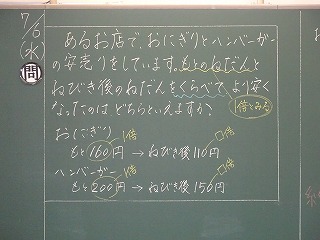 7/6
(水)
問
あるお店で、おにぎりとハンバーガー
の安売りをしています。もとのねだんと
ねびき後のねだんをくらべて、より安く
なったのはどちらといえますか?
1倍とみる
おにぎり 1倍 □倍
もと160円 → ねびき後110円
ハンバーガー 1倍 □倍
もと200円 → ねびき後150円